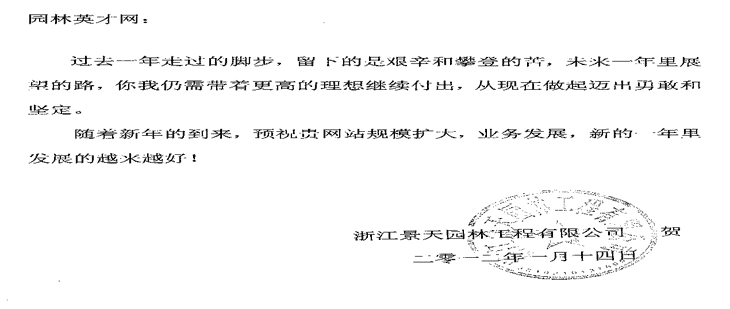 园林英才网：
过去一年走过的脚步，留下的是艰辛和攀登的苦，未来一年里展
望的路，你我仍需带着更高的理想继续付出，从现在做起迈出勇敢和
坚定。
随着新年的到来，预祝贵网站规模扩大，业务发展，新的一年里
发展的越来越好！
浙江景天园林工程有限公司 贺
二零一二年一月十四日